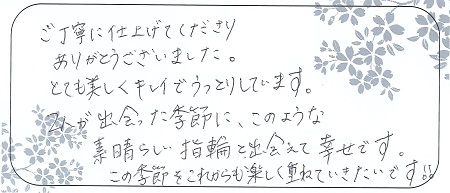 ご丁寧に仕上げてくださり
ありがとうございました。
とても美しくキレイでうっとりしています。
2人が出会った季節に、このような
素晴らしい指輪と出会えて幸せです。
この季節をこれからも楽しく重ねていきたいです!!